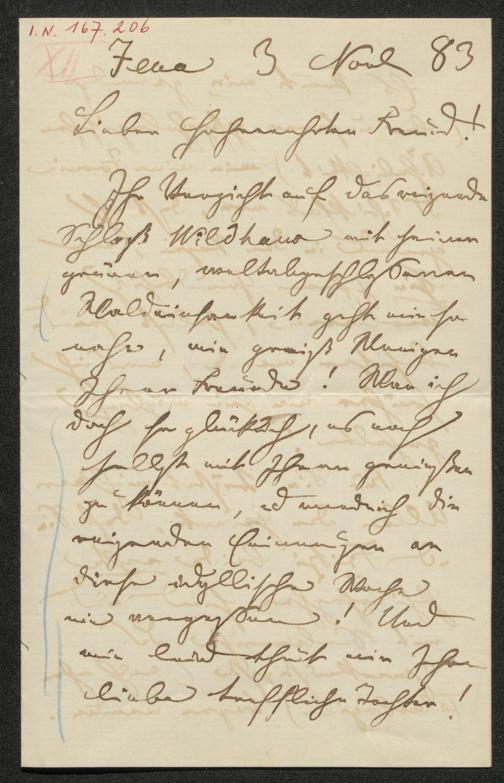 I.N. 167.206
XII
Jena 3 Nov 83
Lieber hochverehrter Freund!
Ihr Verzicht auf das reizende
Schloß Wildhaus mit seiner
grünen, weltabgeschlossenen
Waldeinsamkeit geht mir so
nahe, wie gewiß Wenigen
Ihrer Freunde! War ich
doch so glücklich, es noch
selbst mit Ihnen genießen
zu können, u werde ich die
reizenden Erinnerungen an
diese idyllische Woche
nie vergessen! Und
wie leid thut mir Ihre
liebe treffliche Tochter!